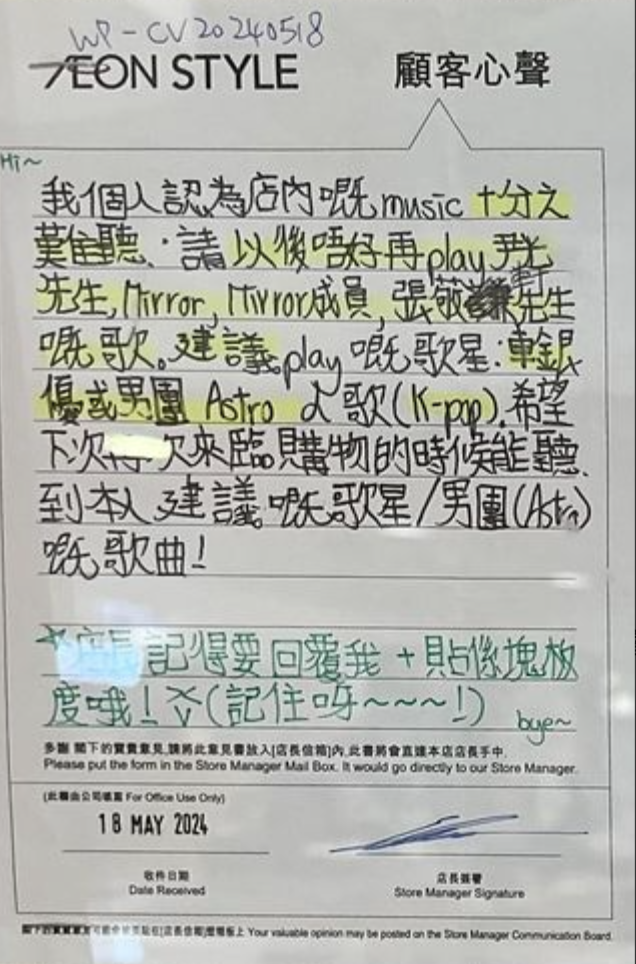 WP-CV20240518
ÆON STYLE
顧客心聲
Hi~
我個人認為店內嘅music十分之
難聽.請以後唔好再play尹光
先生,Mirror,Mirror成員,張敬軒先生
嘅歌。建議play嘅歌星:車銀
優或男團 Astro 歌(K-pop).希望
下次來臨購物的時候能聽
到本人建議嘅歌星/男團(Astro)
嘅歌曲!
店長記得要回覆我+貼係塊板
度哦! (記住呀~~~!)
bye~
多謝閣下的寶貴意見,請將此意見書放入[店長信箱]內,此書將會直達本店店長手中.
Please put the form in the Store Manager Mail Box. It would go directly to our Store Manager.
(此欄由公司填寫 For Office Use Only)
18 MAY 2024
收件日期
Date Received
店長簽署
Store Manager Signature
Your valuable opinion may be posted on the Store Manager Communication Board.